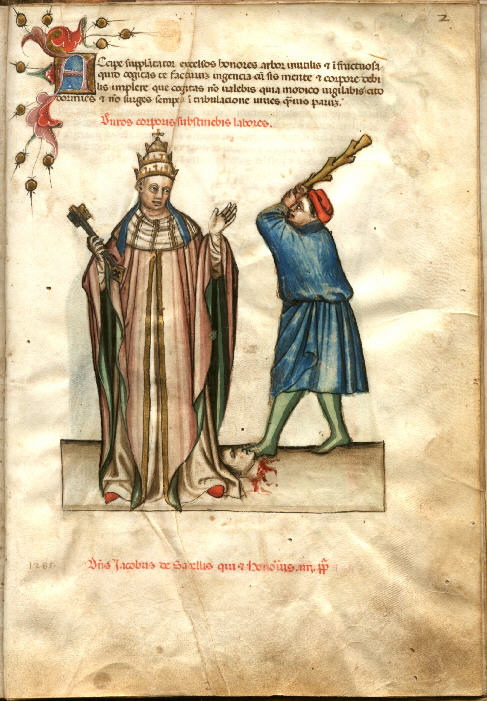 2
Accipe supplātator excelsos honores arbor inutilis & ī fructuosa
quid cogitas te facturum ingencia cū sis mente & corpore debi
lis implere que cogitas nō valebis quia modico vigilabis cito
dormies & nō surges semper ī tribulacione vives
Duros corporis substinebis labores.
1285
Dn̄s Jacobus de Savellis qui & Honorius .iiii. pp̄